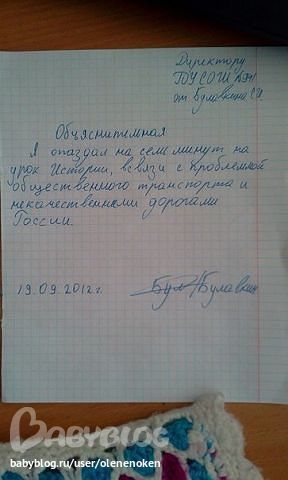 Директору
ГОУ СОШ
от Булавкина С.И
Объяснительная
Я опаздал на семь минут на
урок Истории, всвязи с проблемной
общественного транспорта и
некачественными дорогами
России.
19.09.2012г.
Бул /Булавкин
BABYBLOG
babyblog.ru/user/olenenoken